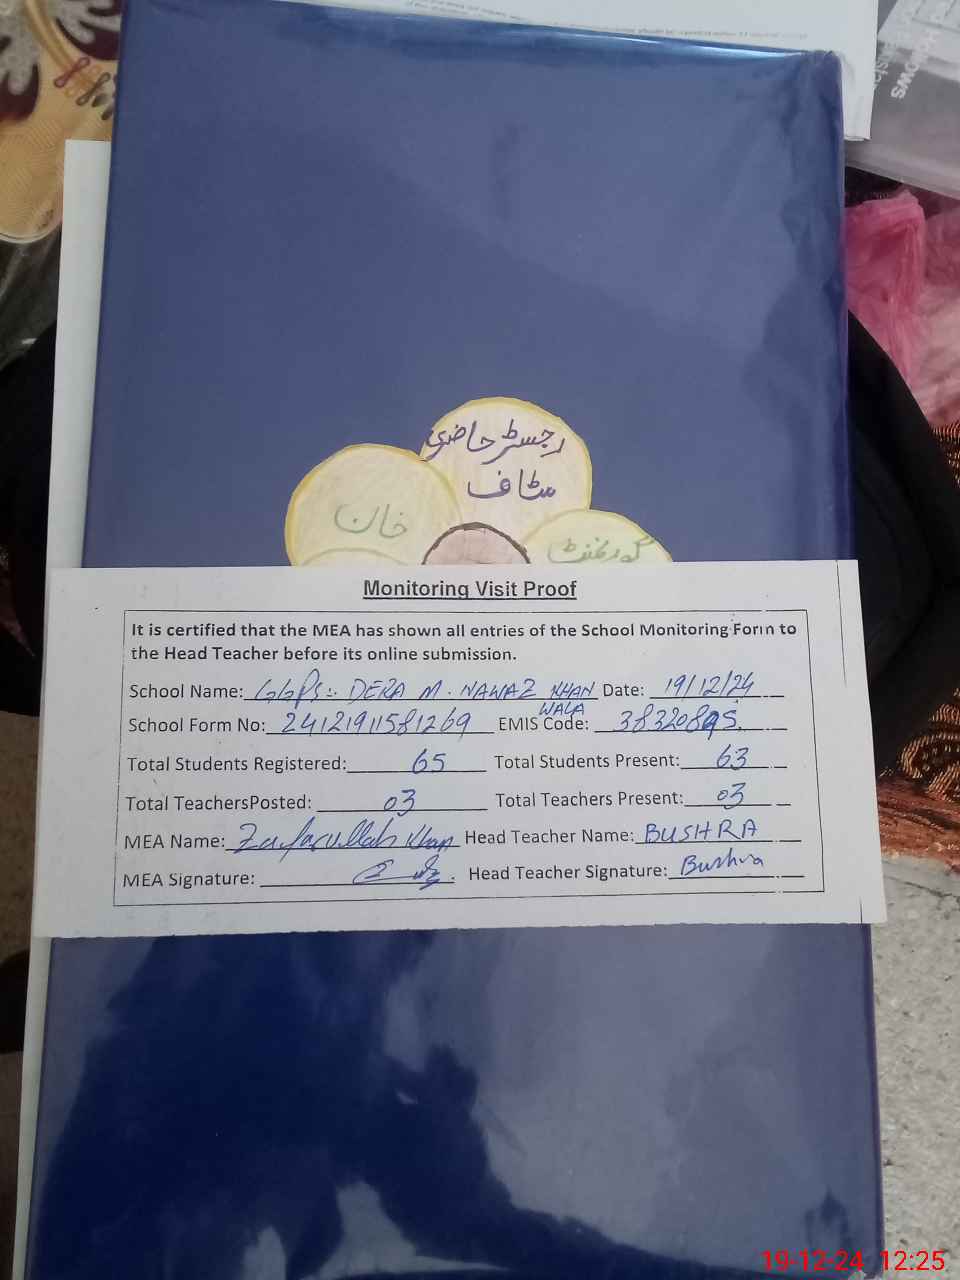 رجسٹر حاضری
سٹاف
خان
گورنمنٹ
Monitoring Visit Proof
It is certified that the MEA has shown all entries of the School Monitoring Form to
the Head Teacher before its online submission.
School Name: GGPS:. DERA M. NAWAZ KHAN WALA Date: 19/12/24
School Form No: 24121911581269 EMIS Code: 38320895
Total Students Registered: 65 Total Students Present: 63
Total TeachersPosted: 03 Total Teachers Present: 03
MEA Name: Zafarullah Khan Head Teacher Name: BUSHRA
MEA Signature: Head Teacher Signature: Bushra
19-12-24 12:25